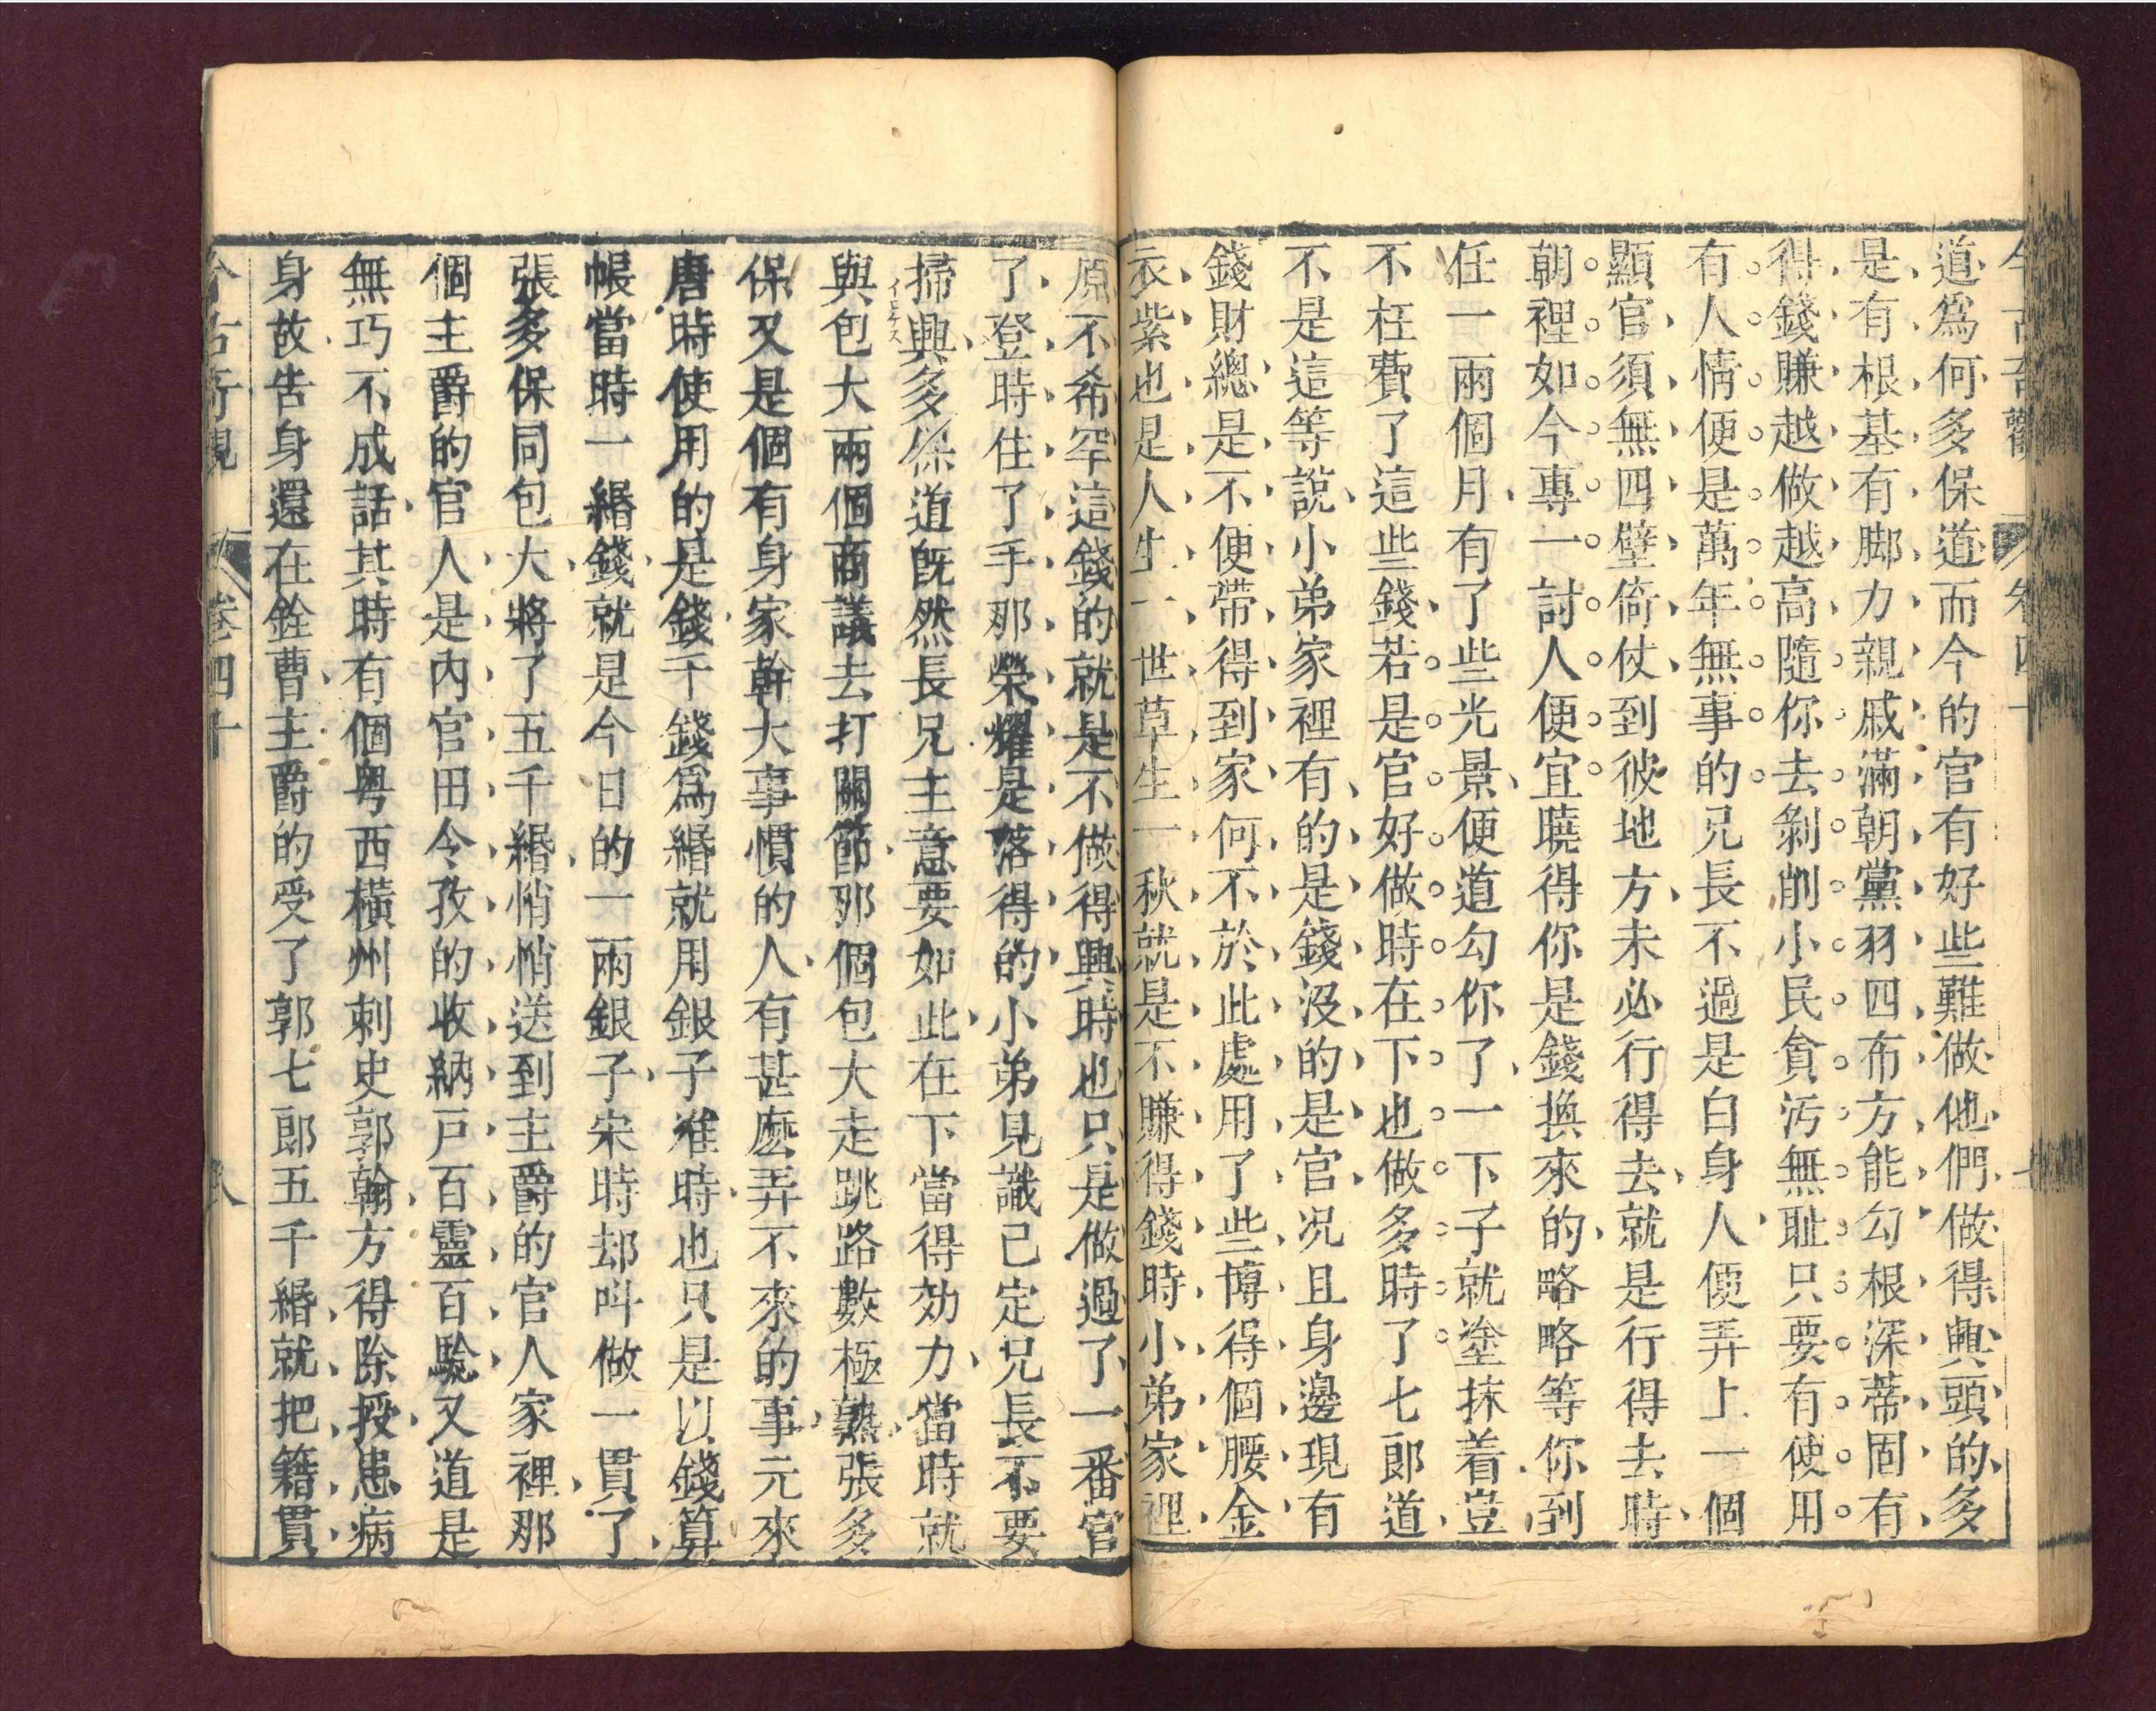 今古奇觀 卷四十
道爲何多保道而今的官有好些難做他們做得興頭的多
是有根基有脚力親戚滿朝黨羽四布方能勾根深蒂固有
得錢賺越做越高隨你去剝削小民貪汚無耻只要有使用
有人情便是萬年無事的兄長不過是白身人便弄上一個
顯官須無四壁倚仗到彼地方未必行得去就是行得去時
朝裡如今專一討人便宜曉得你是錢換來的略略等你到
任一兩個月有了些光景便道勾你了一下子就塗抹着豈
不枉費了這些錢若是官好做時在下也做多時了七郎道
不是這等說小弟家裡有的是錢没的是官况且身邊現有
錢財總是不便帶得到家何不於此處用了些博得個腰金
衣紫也是人生一世草生一秋就是不賺得錢時小弟家裡
原不希罕這錢的就是不做得興時也只是做過了一番官
了登時住了手那榮耀是落得的小弟見識已定兄長不要
掃興多保道既然長兄主意要如此在下當得効力當時就
イモテス
與包大兩個商議去打關節那個包大走跳路數極熟張多
保又是個有身家幹大事慣的人有甚麽弄不來的事元來
唐時使用的是錢千錢爲緡就用銀子准時也只是以錢算
帳當時一緡錢就是今日的一兩銀子宋時却叫做一貫了
張多保同包大將了五千緡悄悄送到主爵的官人家裡那
個主爵的官人是内官田令孜的收納戸百靈百驗又道是
無巧不成話其時有個粤西橫州刺史郭翰方得除授患病
身故告身還在銓曹主爵的受了郭七郎五千緡就把籍貫
今古奇觀 卷四十 八